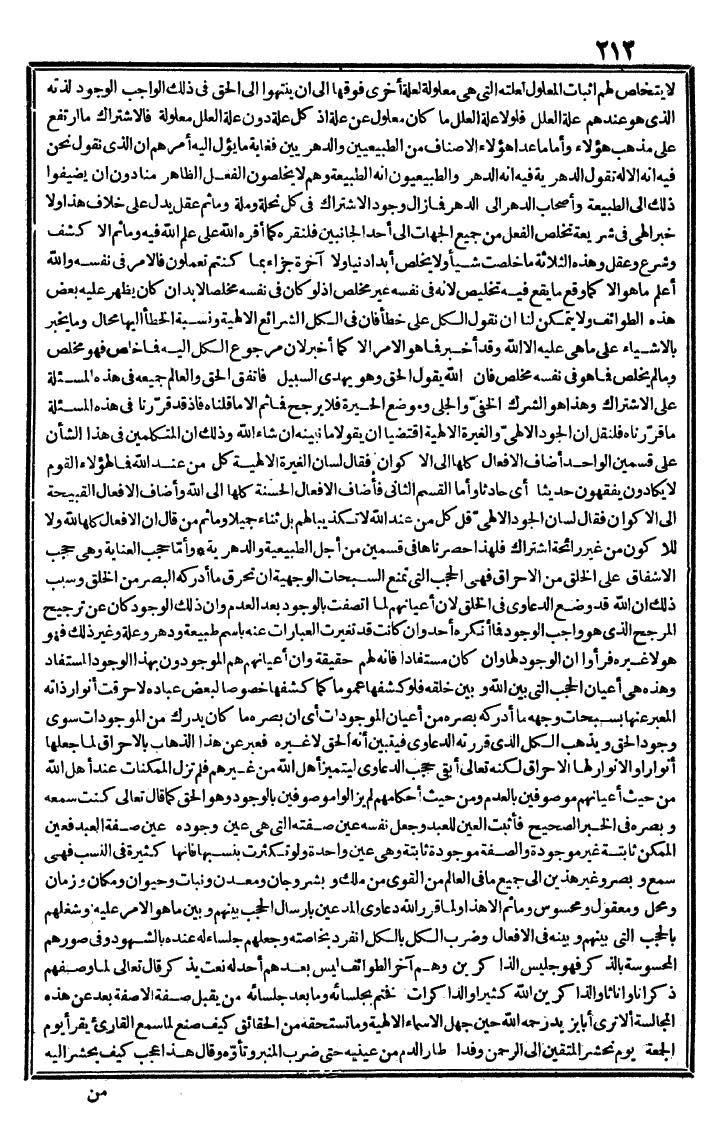 ٢١٣
لا يتخلص لهم اثبات المعلول لعلته التى هى معلولة لعلة أخرى فوقها الى ان ينتهوا الى الحق فى ذلك الواجب الوجود لذاته
الذى هو عندهم علة العلل فلولا علة العلل ما كان معلول عن علة اذ كل علة دون علة العلل معلولة فالاشتراك ما ارتفع
على مذهب هؤلاء وأما ما عدا هؤلاء الاصناف من الطبيعيين والدهريين فغاية ما يؤل اليه أمرهم ان الذى نقول نحن
فيه انه الاله تقول الدهرية فيه انه الدهر والطبيعيون انه الطبيعة وهم لا يخلصون الفعل الظاهر منا دون ان يضيفوا
ذلك الى الطبيعة وأصحاب الدهر الى الدهر فما زال وجود الاشتراك فى كل نحلة وملة وما ثم عقل يدل على خلاف هذا ولا
خبر الهى فى شريعة تخلص الفعل من جميع الجهات الى أحد الجانبين فلنقره كما أقره الله على علم الله فيه وما ثم الا كشف
وشرع وعقل وهذه الثلاثة ما خلصت شيأ ولا يتخلص أبدا دنيا ولا آخرة جزاء بما كنتم تعملون فالامر فى نفسه والله
أعلم ما هو الا كما وقع ما يقع فيه تخليص لانه فى نفسه غير مخلص اذ لو كان فى نفسه مخلصا لابد ان كان يظهر عليه بعض
هذه الطوائف ولا يتمكن لنا ان نقول الكل على خطأ فان فى الكل الشرائع الالهية ونسبة الخطأ اليها محال وما يخبر
بالاشياء على ما هى عليه الا الله وقد أخبر فما هو الامر الا كما أخبر لان مرجوع الكل اليه فما خلص فهو مخلص
وما لم يخلص فما هو فى نفسه مخلص فان الله يقول الحق وهو يهدى السبيل فاتفق الحق والعالم جميعه فى هذه المسئلة
على الاشتراك وهذا هو الشرك الخفىّ والجلى وموضع الحيرة فلا يرجح فما ثم الا ما قلناه فاذ قد قررنا فى هذه المسئلة
ما قررناه فلنقل ان الجود الالهىّ والغيرة الالهية اقتضيا ان يقولا ما نبينه ان شاء الله وذلك ان المتكلمين فى هذا الشأن
على قسمين الواحد أضاف الافعال كلها الى الاكوان فقال لسان الغيرة الالهية كل من عند الله فما لهؤلاء القوم
لا يكادون يفقهون حديثا أى حادثا وأما القسم الثانى فأضاف الافعال الحسنة كلها الى الله وأضاف الافعال القبيحة
الى الاكوان فقال لسان الجود الالهىّ قل كل من عند الله لا تكذيبا لهم بل ثناء جميلا وما ثم من قال ان الافعال كلها لله ولا
للاكون من غير رائحة اشتراك فلهذا حصرناها فى قسمين من أجل الطبيعية والدهرية * وأمّا حجب العناية وهى حجب
الاشفاق على الخلق من الاحراق فهى الحجب التى تمنع السبحات الوجهية ان تحرق ما أدركه البصر من الخلق وسبب
ذلك ان الله قد وضع الدعاوى فى الخلق لان أعيانهم لما اتصفت بالوجود بعد العدم وان ذلك الوجود كان عن ترجيح
المرجح الذى هو واجب الوجود فما أنكره أحد وان كانت قد تغيرت العبارات عنه باسم طبيعة ودهر وعلة وغير ذلك فهو
هو لا غيره فرأوا ان الوجود لها وان كان مستفادا فانه لهم حقيقة وان أعيانهم هم الموجودون بهذا الوجود المستفاد
وهذه هى أعيان الحجب التى بين الله و بين خلقه فلو كشفها عموما كما كشفها خصوصا لبعض عباده لاحرقت أنوار ذاته
المعبر عنها بسبحات وجهه ما أدركه بصره من أعيان الموجودات أى ان بصره ما كان يدرك من الموجودات سوى
وجود الحق و يذهب الكل الذى قررته الدعاوى فيتبين أنه الحق لا غيره فعبر عن هذا الذهاب بالاحراق لما جعلها
أنوارا والانوار لها الاحراق لكنه تعالى أبقى حجب الدعاوى ليتميز أهل الله من غيرهم فلم تزل الممكنات عند أهل الله
من حيث أعيانهم موصوفين بالعدم ومن حيث أحكامهم لم يزالوا موصوفين بالوجود وهو الحق كما قال تعالى كنت سمعه
و بصره فى الخبر الصحيح فأثبت العين للعبد وجعل نفسه عين صفته التى هى عين وجوده عين صفة العبد فعين
الممكن ثابتة غير موجودة والصفة موجودة ثابتة وهى عين واحدة ولو تكثرت بنسبها فانها كثيرة فى النسب فهى
سمع و بصر وغير هذين الى جميع ما فى العالم من القوى من ملك و بشر وجان ومعدن ونبات وحيوان ومكان وزمان
ومحل ومعقول ومحسوس وما ثم الا هذا ولما قرر الله دعاوى المدعين بارسال الحجب بينهم و بين ما هو الامر عليه وشغلهم
بالحجب التى بينهم و بينه فى الافعال وضرب الكل بالكل انفرد بخاصته وجعلهم جلساء له عنده بالشهود وفى صورهم
المحسوسة بالذكر فهو جليس الذاكرين وهم آخر الطوائف ليس بعدهم أحد له نعت يذكر قال تعالى لما وصفهم
ذكرانا واناثا والذاكرين الله كثيرا والذاكرات فختم بجلسائه وما بعد جلسائه من يقبل صفة الا صفة بعد عن هذه
المجالسة ألا ترى أبا يزيد رحمه الله حين جهل الاسماء الالهية وما تستحقه من الحقائق كيف صنع لما سمع القارئ يقرأ يوم
الجمعة يوم نحشر المتقين الى الرحمن وفدا طار الدم من عينيه حتى ضرب المنبر وتأوّه وقال هذا عجب كيف يحشر اليه
من